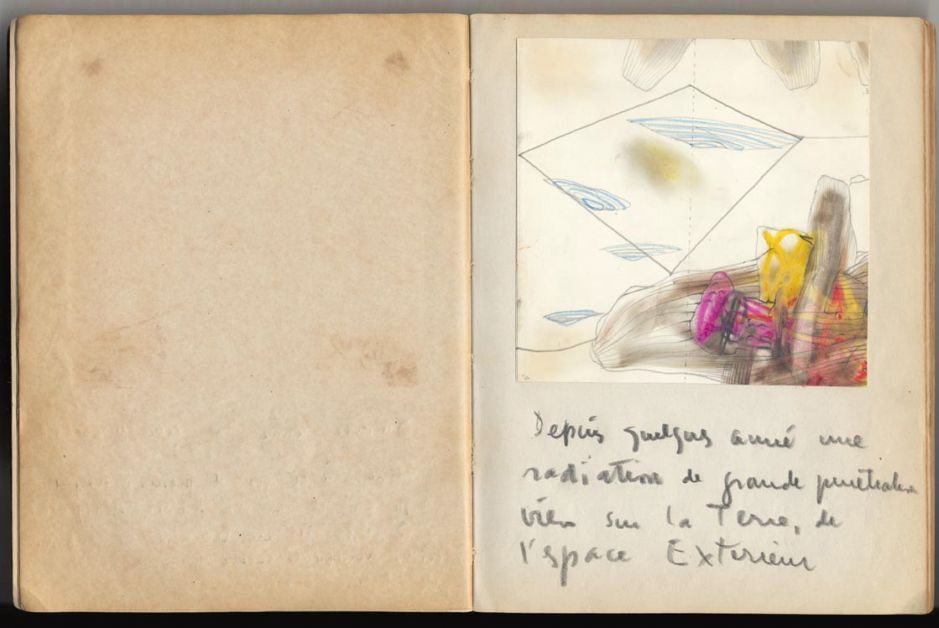 Depuis quelques anné une
radiation de grande penetration
vien sur la Terre, de
l'espace Exterieur